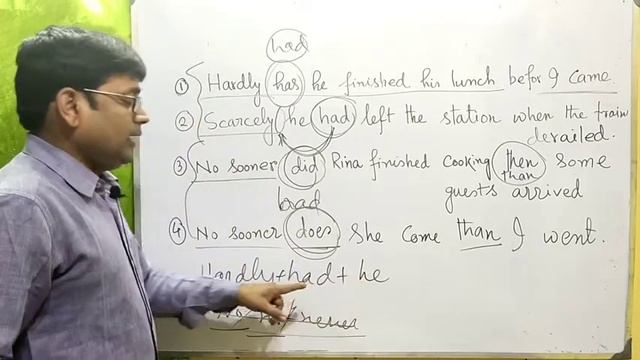 had
① Hardly has he finished his lunch befor I came
② Scarcely he had left the station when the train
derailed.
③ No sooner did Rina finished cooking then some
had than guests arrived
④ No sooner does she come than I went.
Hardly + had + he